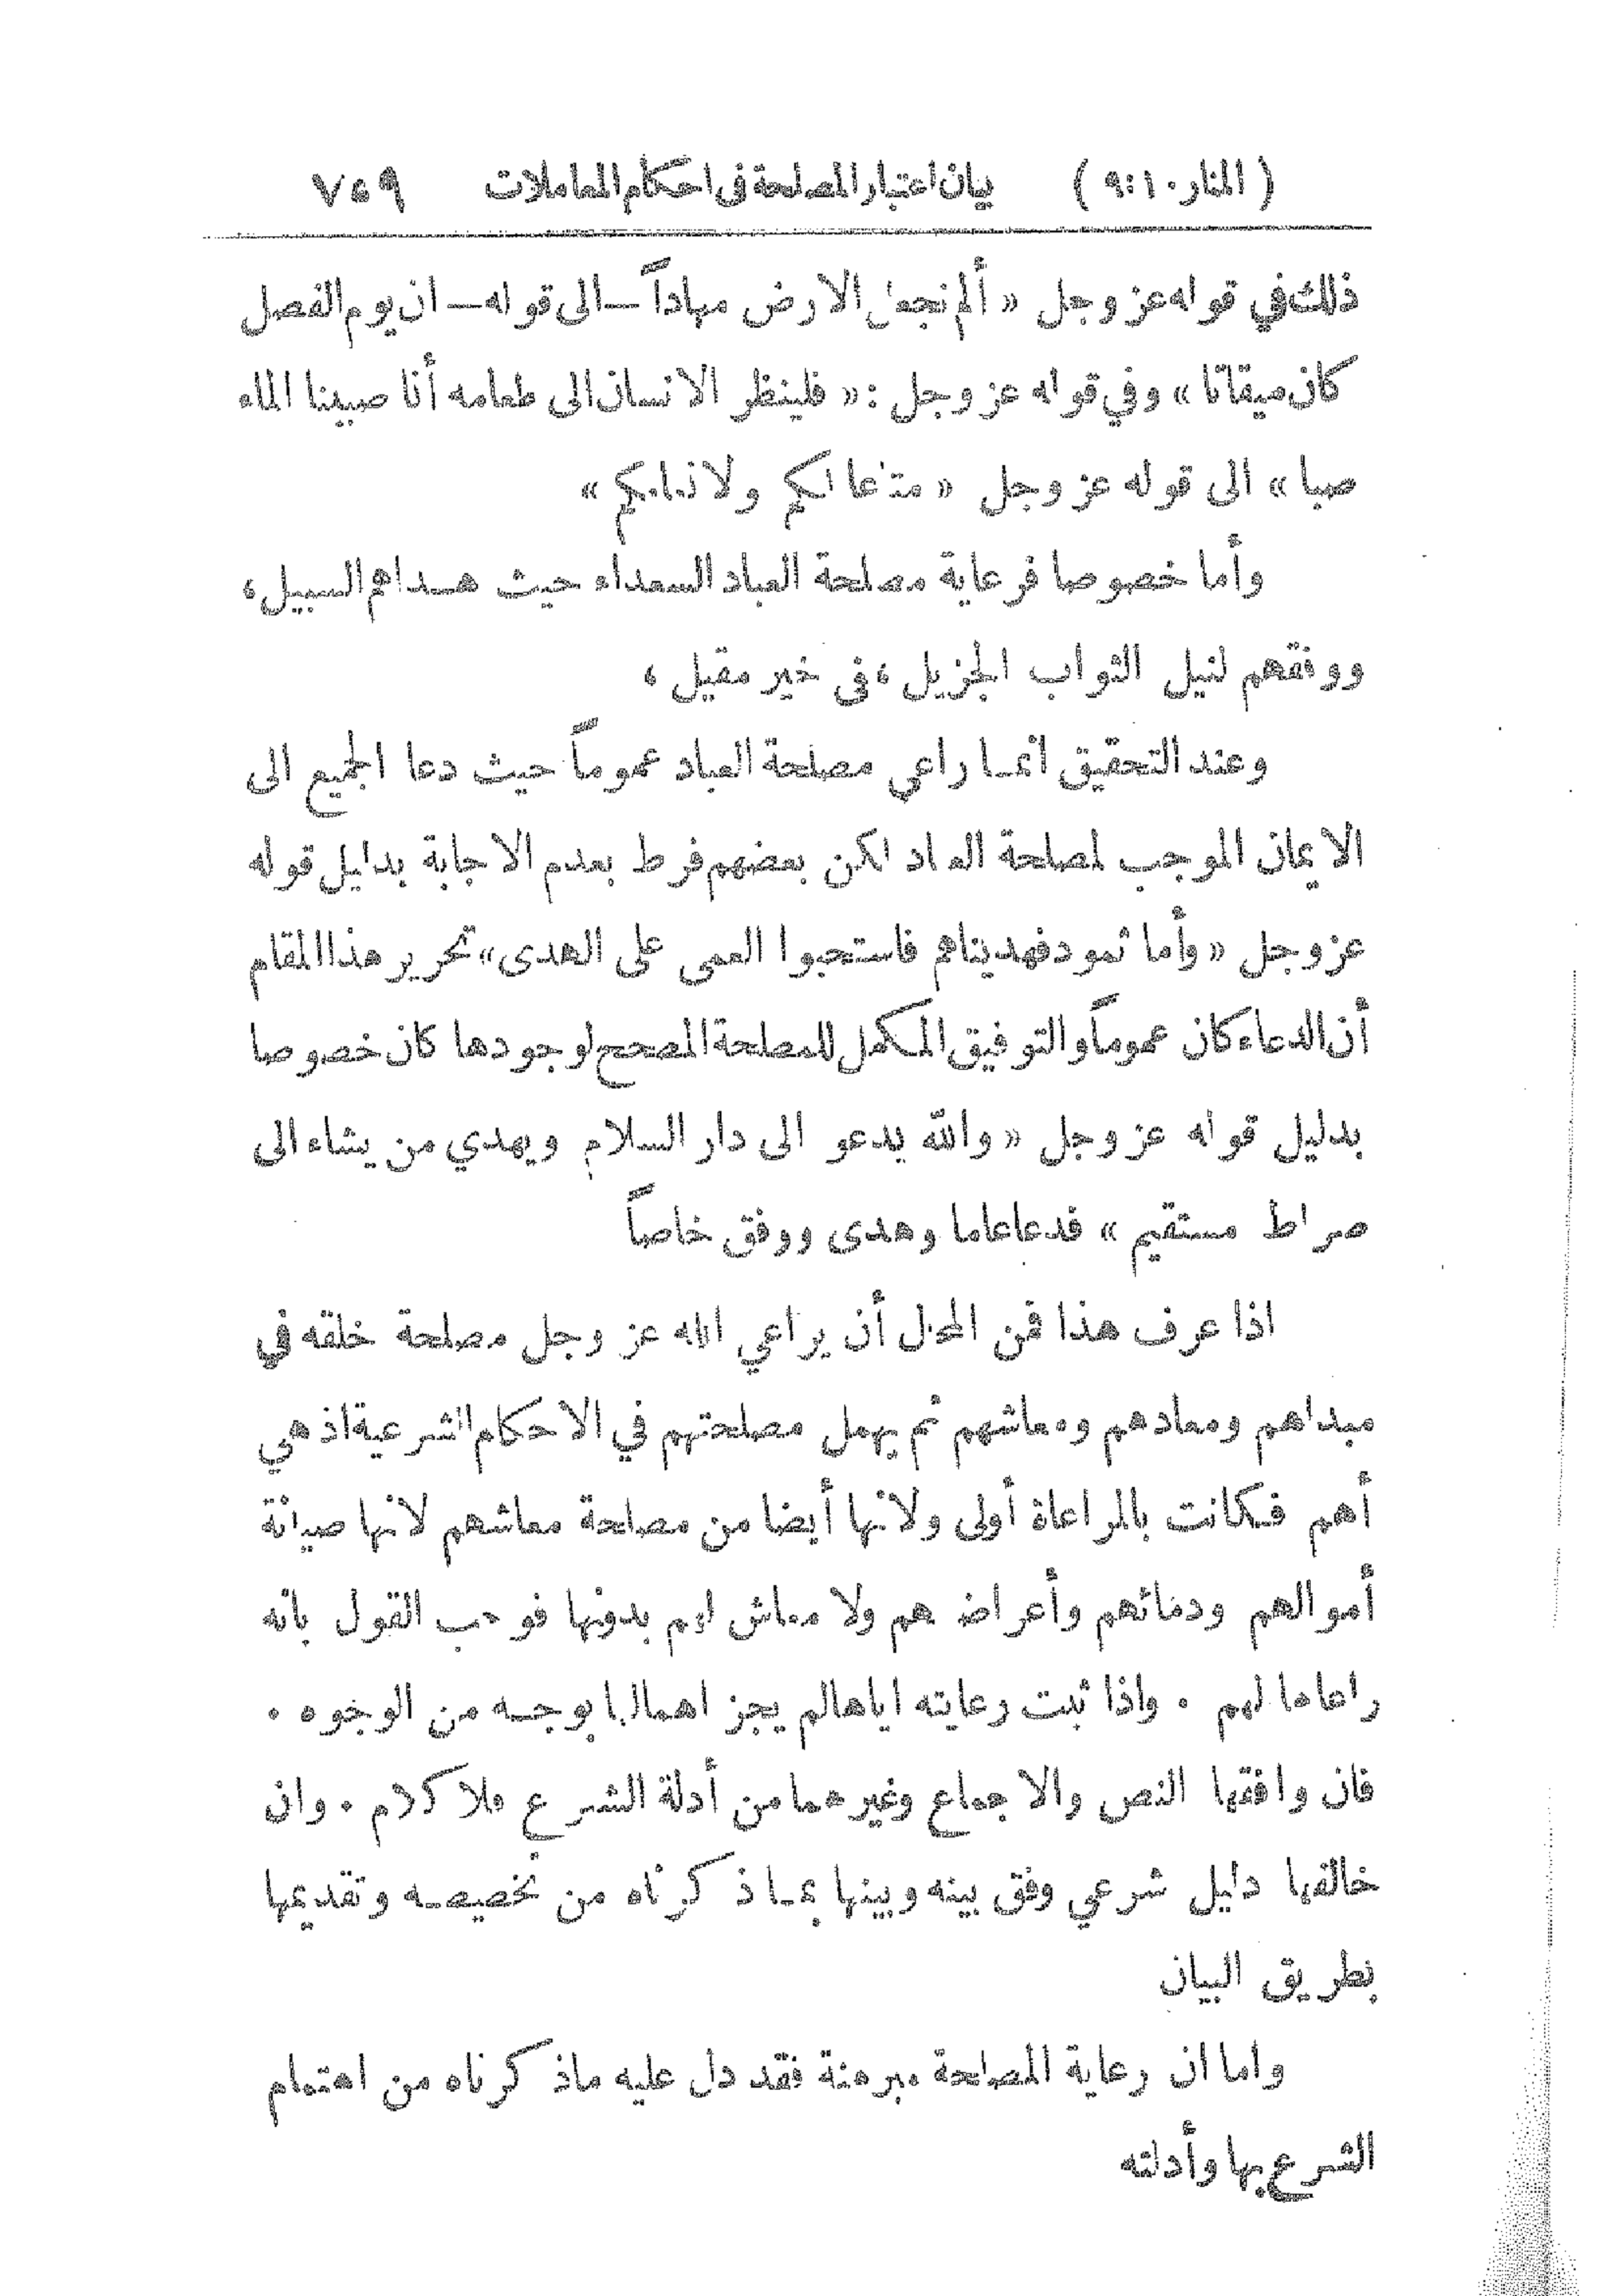 ( المنار ١٠ : ٩ ) بيان اعتبار المصلحة في احكام المعاملات ٧٤٩
ذلك في قوله عز وجل « ألم نجعل الارض مهاداً — الى قوله — ان يوم الفصل
كان ميقاتا » وفي قوله عز وجل : « فلينظر الانسان الى طعامه أنا صببنا الماء
صبا » الى قوله عز وجل « متاعا لكم ولانعامكم »
وأما خصوصا فرعاية مصلحة العباد السعداء حيث هداهم السبيل ،
ووفقهم لنيل الثواب الجزيل ، في خير مقيل ،
وعند التحقيق انما راعي مصلحة العباد عموماً حيث دعا الجميع الى
الايمان الموجب لمصلحة المعاد لكن بعضهم فرط بعدم الاجابة بدليل قوله
عز وجل « وأما ثمود فهديناهم فاستحبوا العمى على الهدى » تحرير هذا المقام
أن الدعاء كان عموماً والتوفيق المكمل للمصلحة المصحح لوجودها كان خصوصا
بدليل قوله عز وجل « والله يدعو الى دار السلام ويهدي من يشاء الى
صراط مستقيم » فدعا عاما وهدى ووفق خاصاً
اذا عرف هذا فمن المحال أن يراعي الله عز وجل مصلحة خلقه في
مبداهم ومعادهم ومعاشهم ثم يهمل مصلحتهم في الاحكام الشرعية اذ هي
أهم فكانت بالمراعاة أولى ولانها أيضا من مصلحة معاشهم لانها صيانة
أموالهم ودمائهم وأعراضهم ولا معاش لهم بدونها فوجب القول بانه
راعاها لهم . واذا ثبت رعايته اياها لم يجز اهمالها بوجه من الوجوه .
فان وافقها النص والاجماع وغيرهما من أدلة الشرع فلا كلام . وان
خالفها دليل شرعي وفق بينه وبينها بما ذكرناه من تخصيصه وتقديمها
بطريق البيان
واما ان رعاية المصلحة مبرهنة فقد دل عليه ماذكرناه من اهتمام
الشرع بها وأدلته